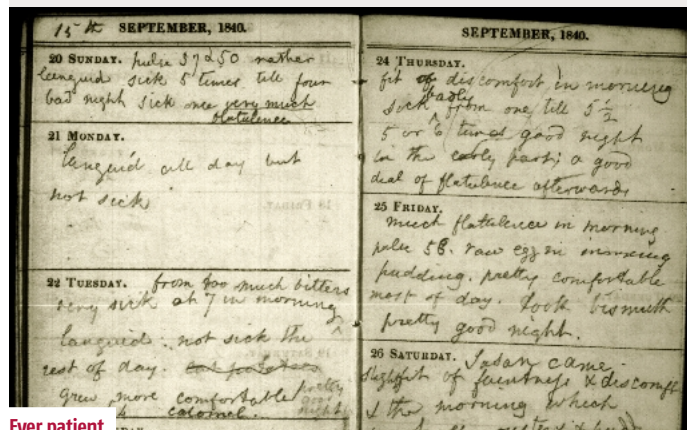 15th SEPTEMBER, 1840.
20 SUNDAY. pulse 37 & 50 rather
languid sick 5 times till four
bad night sick once very much
flatulence
21 MONDAY.
languid all day but
not sick
22 TUESDAY. from too much bitters
very sick at 7 in morning
languid: not sick the
rest of day.
grew more comfortable pretty
calomel. good night
SEPTEMBER, 1840.
24 THURSDAY.
fit of discomfort in morning
badly
sick from one till 5½
5 or 6 times good night
in the early part; a good
deal of flatulence afterwards
25 FRIDAY.
much flatulence in morning
pulse 58. raw egg in
pudding. pretty comfortable
most of day. took bismuth
pretty good night.
26 SATURDAY. Susan came.
slight fit of faintness & discomft
& the morning which
Ever patient